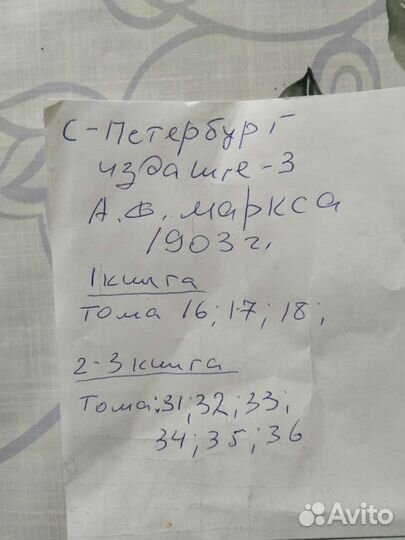 С-Петербург
издание-3
А.Ф. Маркса
1903 г.
1 книга
Тома 16; 17; 18;
2-3 книга
Тома: 31; 32; 33;
34; 35; 36
Avito